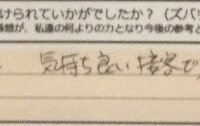 けられていかがでしたか？（ズバリ
感想が、私達の何よりの力となり今後の参考と
気持ち良い接客で